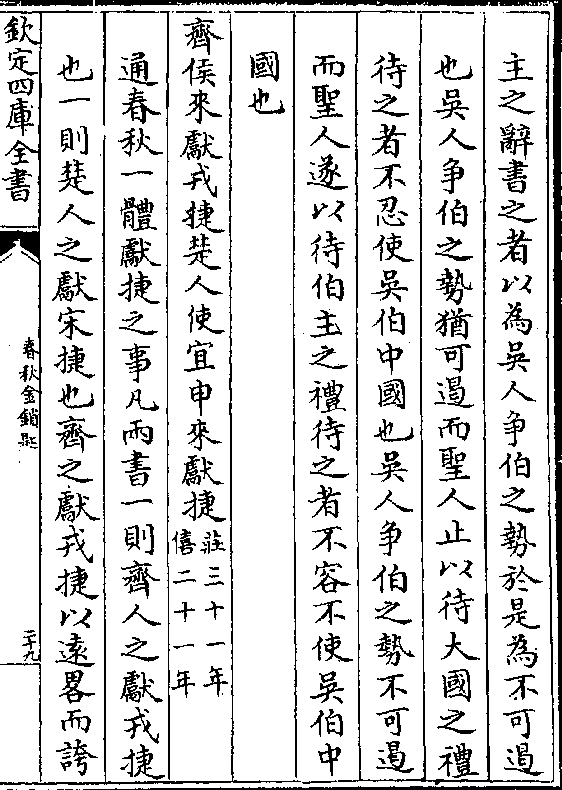 主之辭書之者以為吳人争伯之勢於是為不可遏
也吳人争伯之勢猶可遏而聖人止以待大國之禮
待之者不忍使吳伯中國也吳人争伯之勢不可遏
而聖人遂以待伯主之禮待之者不容不使吳伯中
國也
齊侯來獻戎捷楚人使宜申來獻捷莊三十一年僖二十一年
通春秋一體獻捷之事凡兩書一則齊人之獻戎捷
也一則楚人之獻宋捷也齊之獻戎捷以遠畧而誇
欽定四庫全書
春秋金鎖匙
二十九